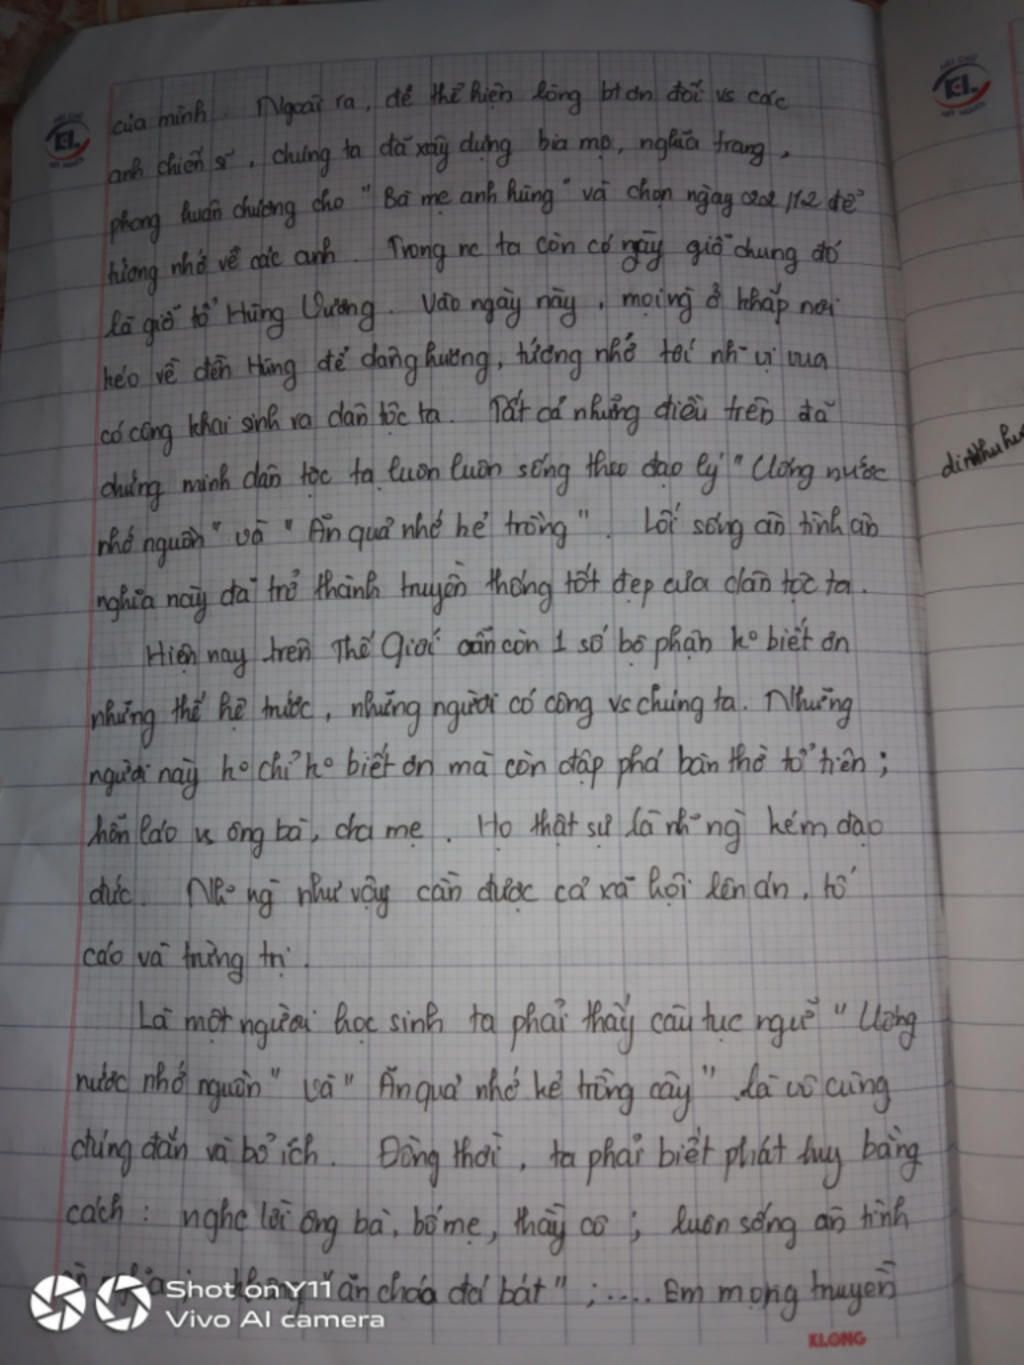 của mình. Ngoài ra, để thể hiện lòng bt ơn đối vs các
anh chiến sĩ, chúng ta đã xây dựng bia mộ, nghĩa trang,
phong huân chương cho "Bà mẹ anh hùng" và chọn ngày để
tưởng nhớ về các anh. Trong nc ta còn có ngày giỗ chung đó
là giỗ tổ Hùng Vương. Vào ngày này, mọi ng ở khắp nơi
kéo về đền Hùng để dâng hương, tưởng nhớ tới nh~ vị vua
có công khai sinh ra dân tộc ta. Tất cả những điều trên đã
chứng minh dân tộc ta luôn luôn sống theo đạo lý "Uống nước
nhớ nguồn" và "Ăn quả nhớ kẻ trồng". Lối sống ân tình ân
nghĩa này đã trở thành truyền thống tốt đẹp của dân tộc ta.
Hiện nay trên Thế Giới vẫn còn 1 số bộ phận ko biết ơn
những thế hệ trước, những người có công vs chúng ta. Những
người này ko chỉ ko biết ơn mà còn đập phá bàn thờ tổ tiên;
hỗn láo vs ông bà, cha mẹ. Họ thật sự là nh~ ng kém đạo
đức. Nh~ ng như vậy cần được cả xã hội lên án, tố
cáo và trừng trị.
Là một người học sinh ta phải thấy câu tục ngữ "Uống
nước nhớ nguồn" và "Ăn quả nhớ kẻ trồng cây" là vô cùng
đúng đắn và bổ ích. Đồng thời, ta phải biết phát huy bằng
cách: nghe lời ông bà, bố mẹ, thầy cô; luôn sống ân tình
ăn cháo đá bát"; .... Em mong truyền
Shot on Y11
Vivo AI camera
KLONG